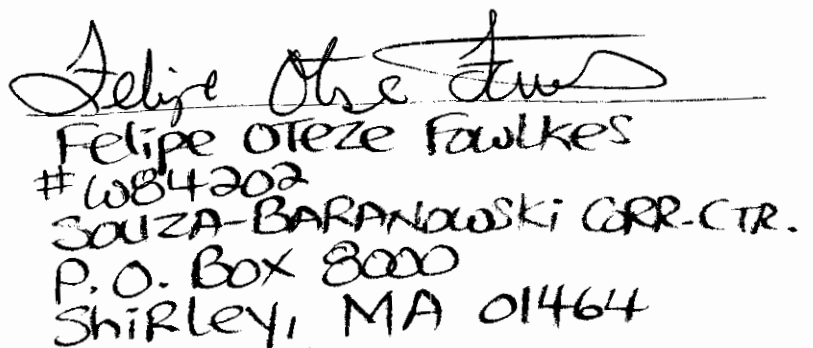 Felipe Oteze Fowlkes
Felipe OTeze Fowlkes
#W84202
SOUZA-BARANOWSKi CORR-CTR.
P.O. BOX 8000
ShiRley, MA 01464